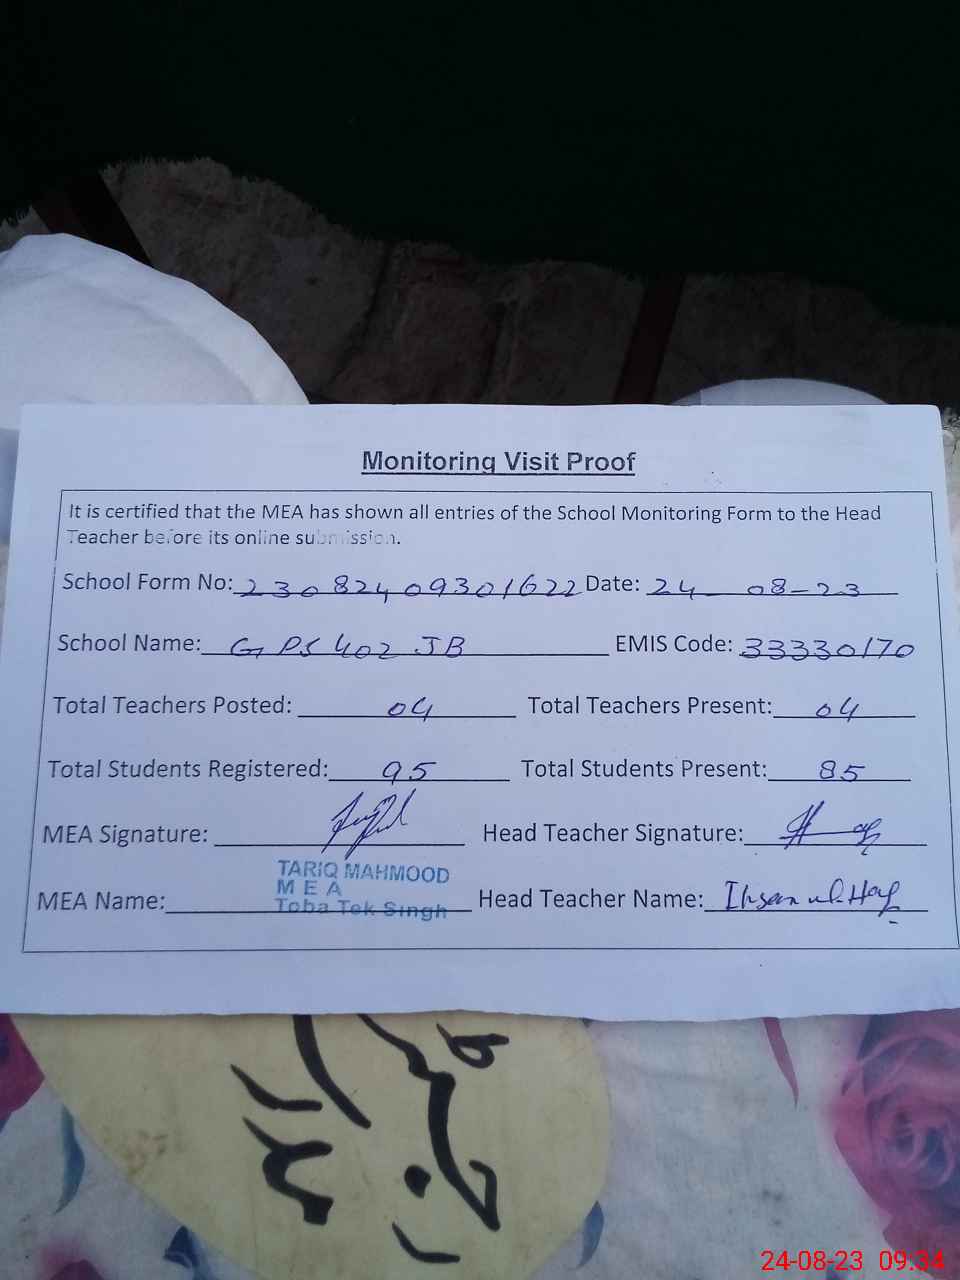 Monitoring Visit Proof
It is certified that the MEA has shown all entries of the School Monitoring Form to the Head
Teacher before its online submission.
School Form No: 23082409301622 Date: 24-08-23
School Name: GPS 402 JB EMIS Code: 33330170
Total Teachers Posted: 04 Total Teachers Present: 04
Total Students Registered: 95 Total Students Present: 85
MEA Signature: Head Teacher Signature:
TARIQ MAHMOOD
M E A
MEA Name: Toba Tek Singh Head Teacher Name: Ihsan ul Haq
24-08-23 09:34